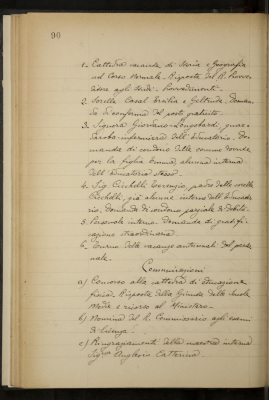 90
1. Cattedra vacante di Storia e Geografia
nel Corso Normale. Risposta del R. Provve-
ditore agli Studi. Provvedimenti.
2. Sorelle Casal Ersilia e Geltrude. Doman-
da di conferma del posto gratuito.
3. Signora Giovanna Longobardi, guar-
daroba-infermiera dell'Educatorio. Do-
manda di condono delle somme dovute
per la figlia Emma, alunna interna
dell'Educatorio stesso.
4. Sig. Cicchelli Lorenzo, padre delle sorelle
Cicchelli, già alunne interne dell'Educato-
rio. Domanda di condono parziale di debito.
5. Personale interno. Domanda di gratifi-
cazione straordinaria.
6. Turno delle vacanze autunnali del perso-
nale.
Comunicazioni
a) Concorso alla cattedra di educazione
fisica. Risposta della Giunta delle Scuole
Medie e ricorso al Ministero.
b) Nomina del R. Commissario agli esami
di licenza.
c) Ringraziamenti della maestra interna
Sig.na Caterina.